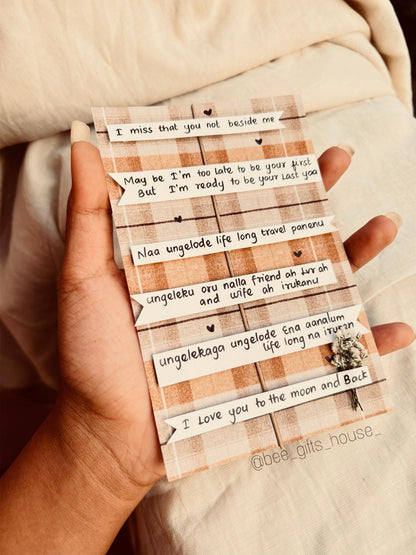 I miss that you not beside me
May be I'm too late to be your first
But I'm ready to be your Last you
Naa ungelode life long travel panenu
ungeleku oru nalla friend ah
and wife ah irukanu
ungelekaga ungelode Ena aanalum
life long na irukan
I Love you to the moon and Back
@bee_gifts_house_